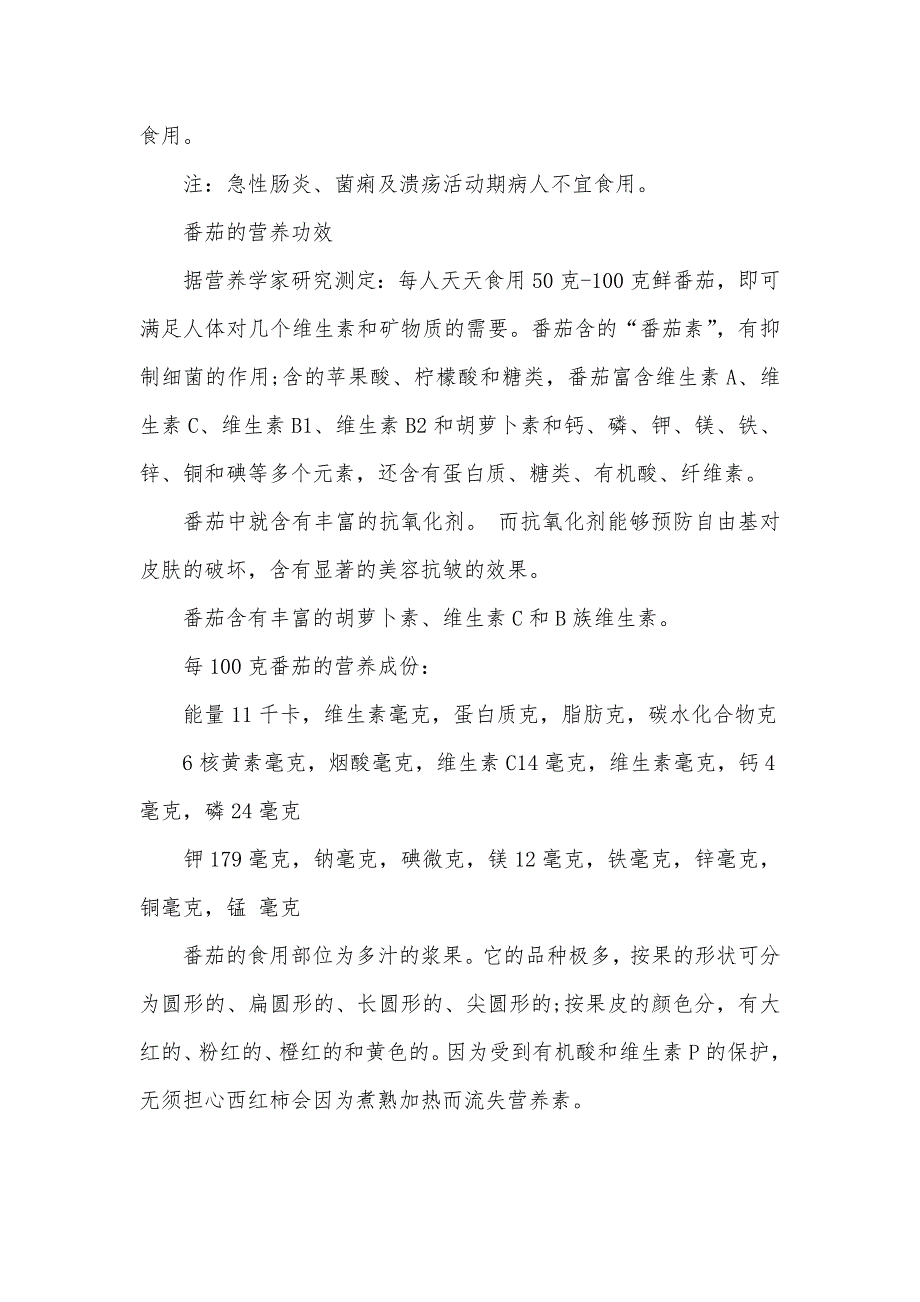 食用。
注：急性肠炎、菌痢及溃疡活动期病人不宜食用。
番茄的营养功效
据营养学家研究测定：每人天天食用 50 克-100 克鲜番茄，即可
满足人体对几个维生素和矿物质的需要。番茄含的“番茄素”，有抑
制细菌的作用;含的苹果酸、柠檬酸和糖类，番茄富含维生素 A、维
生素 C、维生素 B1、维生素 B2 和胡萝卜素和钙、磷、钾、镁、铁、
锌、铜和碘等多个元素，还含有蛋白质、糖类、有机酸、纤维素。
番茄中就含有丰富的抗氧化剂。 而抗氧化剂能够预防自由基对
皮肤的破坏，含有显著的美容抗皱的效果。
番茄含有丰富的胡萝卜素、维生素 C 和 B 族维生素。
每 100 克番茄的营养成份：
能量 11 千卡，维生素毫克，蛋白质克，脂肪克，碳水化合物克
6 核黄素毫克，烟酸毫克，维生素 C14 毫克，维生素毫克，钙 4
毫克，磷 24 毫克
钾 179 毫克，钠毫克，碘微克，镁 12 毫克，铁毫克，锌毫克，
铜毫克，锰 毫克
番茄的食用部位为多汁的浆果。它的品种极多，按果的形状可分
为圆形的、扁圆形的、长圆形的、尖圆形的;按果皮的颜色分，有大
红的、粉红的、橙红的和黄色的。因为受到有机酸和维生素 P 的保护，
无须担心西红柿会因为煮熟加热而流失营养素。